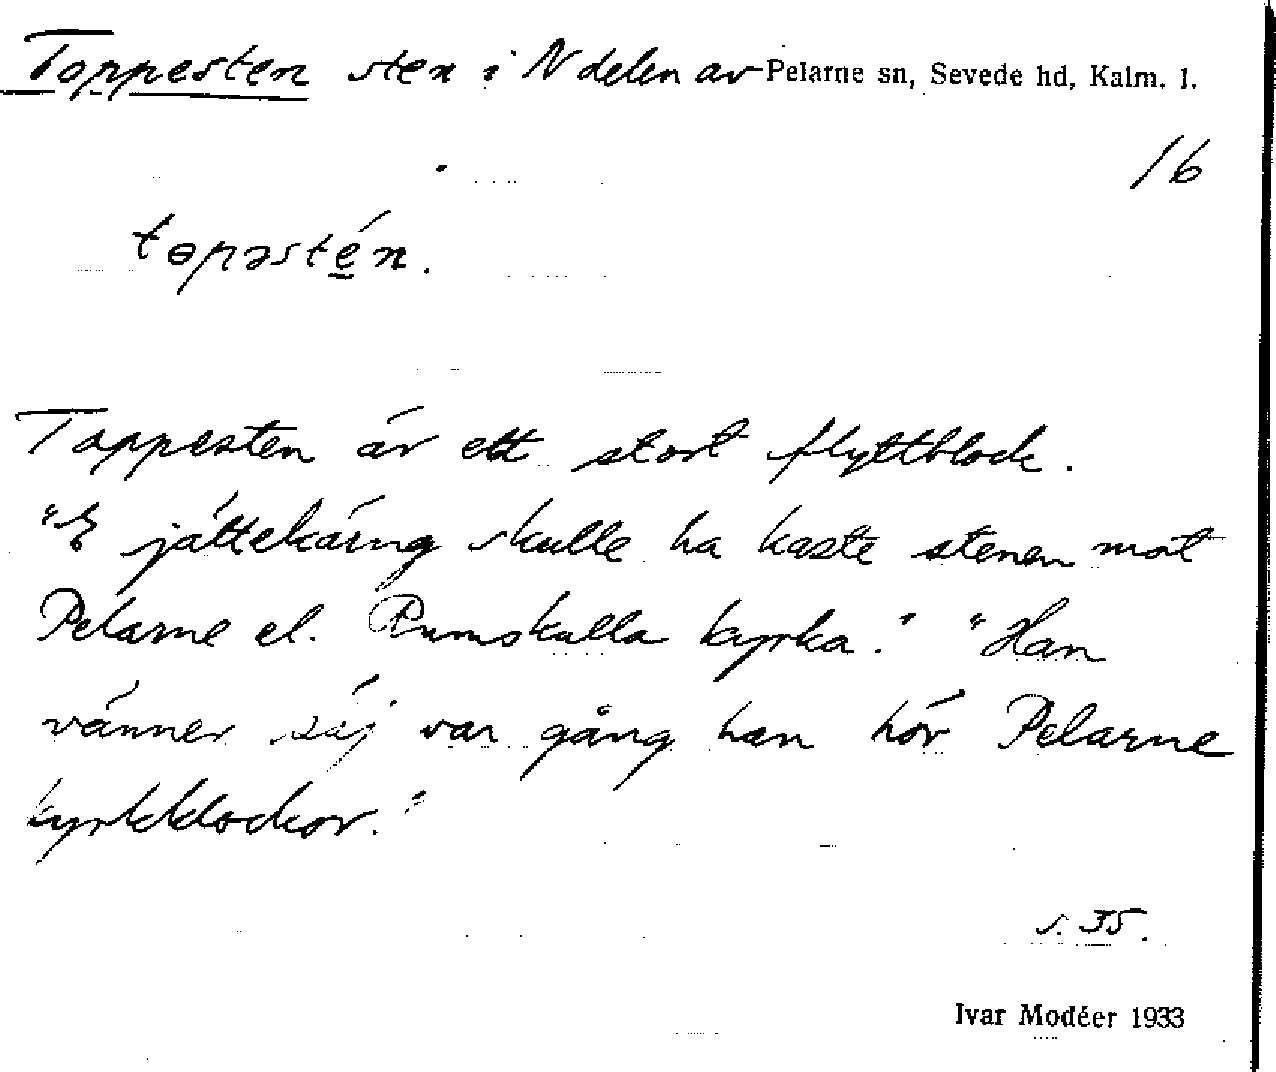 Toppesten sten i N delen av Pelarne sn, Sevede hd, Kalm. l.
16
topəstén.
Toppesten är ett stort flyttblock.
"E jättekäring skulle ha kaste stenen mot
Pelarne el. Rumskulla kyrka." "Han
vänner säj var gång han hör Pelarne
kyrkklockor."
s. 35.
Ivar Modéer 1933